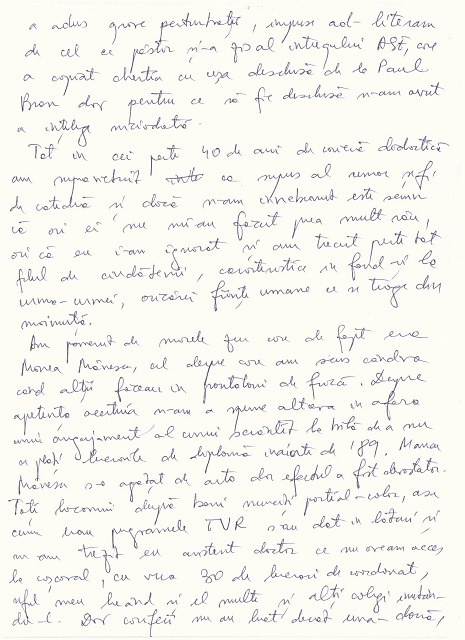 a adus grave perturbații, impuse ad-literam
de cel ce păstor și-a fost al întregului ASE, care
a copiat chestia cu ușa deschisă de la Paul
Bran dar pentru ce să fie deschisă n-am avut
a înțelege niciodată.
Tot în cei peste 40 de ani de carieră didactică
am supraviețuit ca supus al unor șefi
de catedră și dacă n-am încărunțit este semn
că ori ei nu mi-au făcut prea mult rău,
ori că eu i-am ignorat și am trecut peste tot
felul de ciudățenii, caracteristice în fond și la
urma-urmei, oricărei ființe umane ce se trage din
maimuță.
Am pomenit de marele care de fapt era
Manea Mănescu, cel despre care am scris cândva
când alții făceau în pantaloni de frică. Despre
apetența acestuia n-am a spune altceva în afara
unui angajament al unui secretar la bibl de a nu
se plăti lucrările de diplomă înainte de '89. Manea
Mănescu s-a apucat de asta dar efectul a fost devastator.
Toți lacomi după bani numesc portial-color, așa
cum erau programele TVR s-au dat în lături și
m-am trezit eu asistent doctor ce nu aveam acces
la cașcaval, cu vreo 30 de lucrări de coordonat,
șeful meu luând și el multe și alți colegi imitân-
du-l. Dar conferii nu au luat decât una-două,